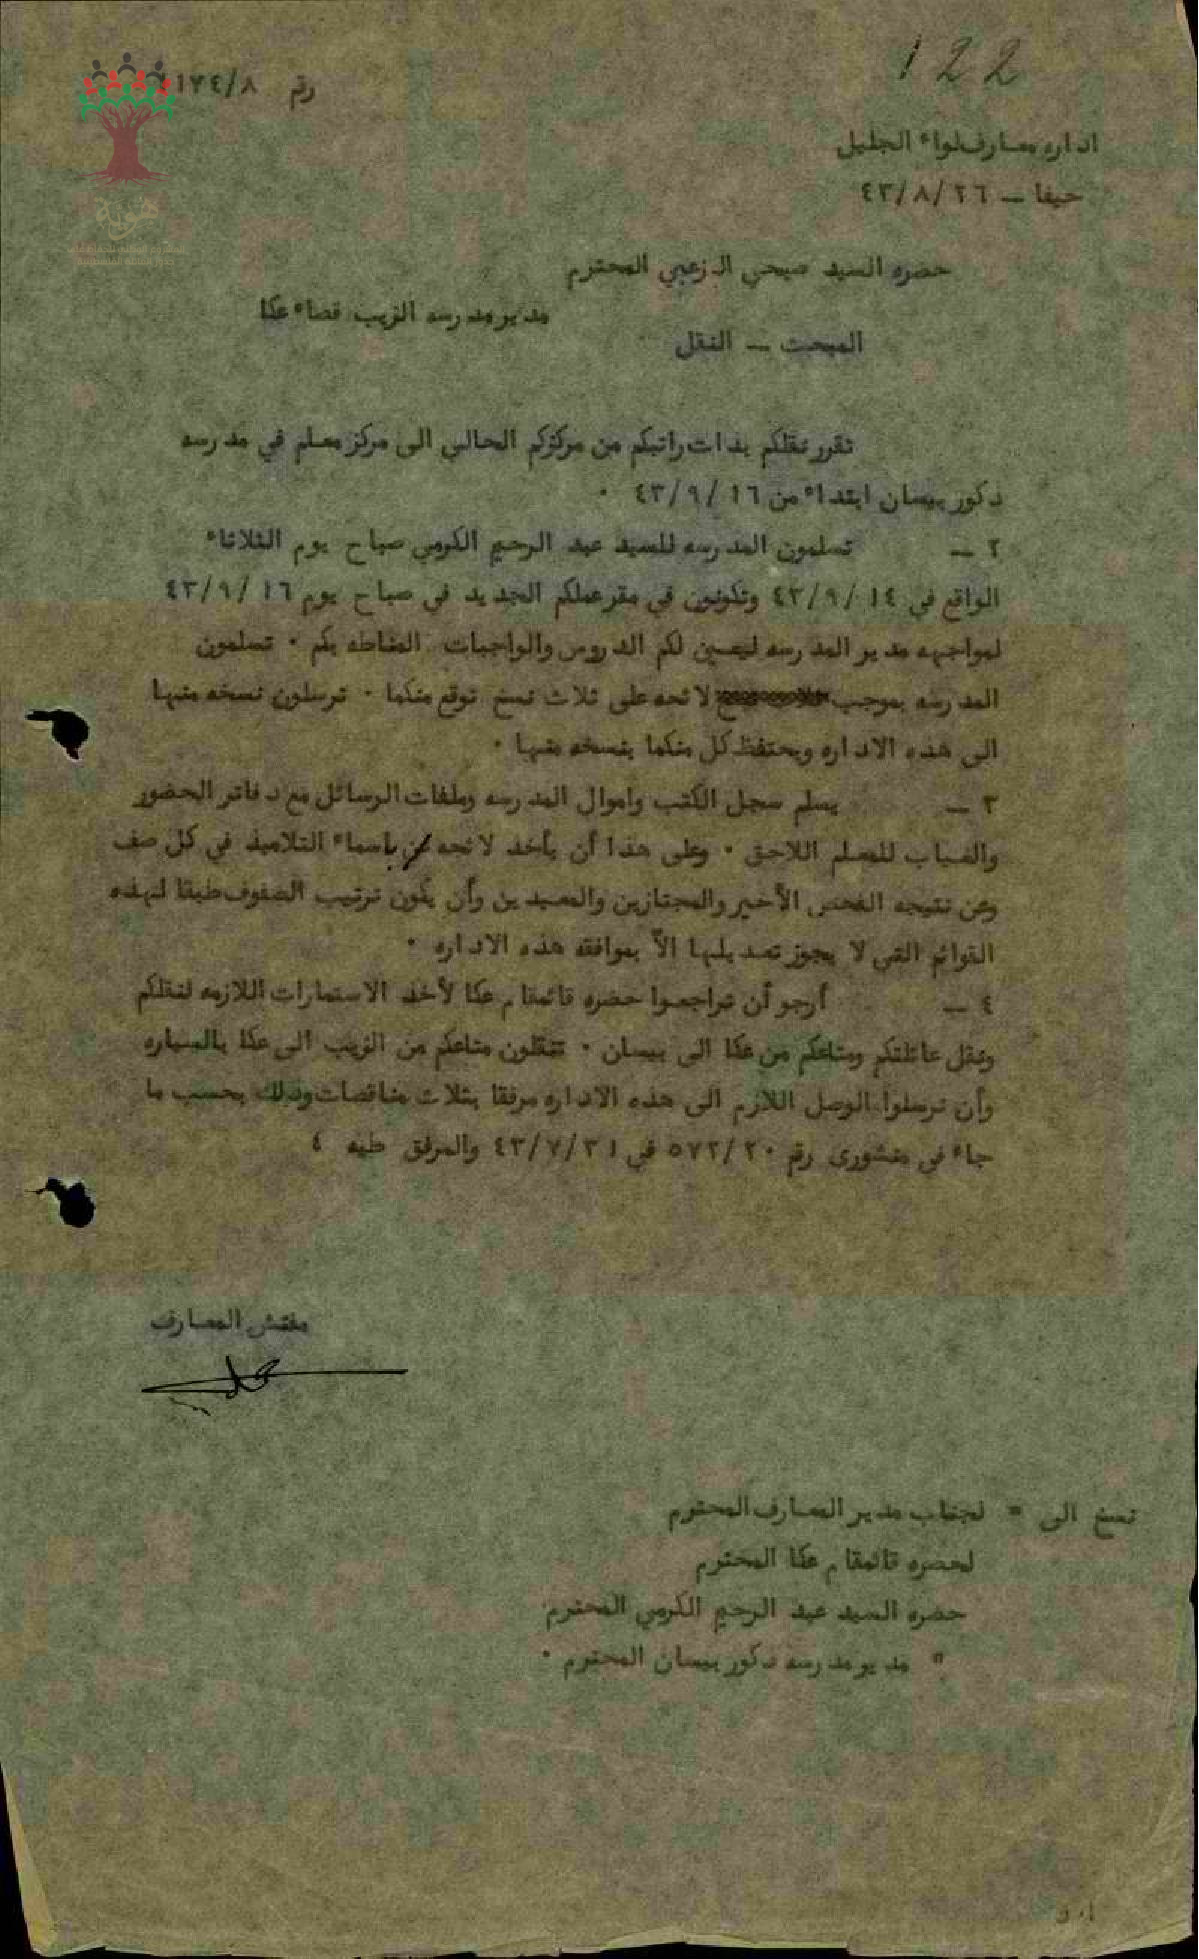 122
رقم ١٢٤/٨
اداره معارف لواء الجليل
حيفا ــ ٢٦/٨/٤٣
حضره السيد صبحي الزعبي المحترم
مدير مدرسه الزيب قضاء عكا
المبحث ــ النقل
تقرر نقلكم بذات راتبكم من مركزكم الحالي الى مركز معلم في مدرسه
ذكور بيسان ابتداء من ١٦/٩/٤٣ ٠
٢ ــ تسلمون المدرسه للسيد عبد الرحيم الكرمي صباح يوم الثلاثاء
الواقع في ١٤/٩/٤٣ وتكونون في مقر عملكم الجديد في صباح يوم ١٦/٩/٤٣
لمواجهه مدير المدرسه ليعين لكم الدروس والواجبات المناطه بكم ٠ تسلمون
المدرسه بموجب لائحه على ثلاث نسخ توقع منكما ٠ ترسلون نسخه منها
الى هذه الاداره ويحتفظ كل منكما بنسخه منها ٠
٣ ــ يسلم سجل الكتب واموال المدرسه وملفات الرسائل مع دفاتر الحضور
والغياب للمعلم اللاحق ٠ وعلى هذا أن يأخذ لائحه باسماء التلاميذ في كل صف
وعن نتيجه الفحص الأخير والمجتازين والمعيدين وأن يكون ترتيب الصفوف طبقا لهذه
القوائم التي لا يجوز تعديلها الاّ بموافقه هذه الاداره ٠
٤ ــ أرجو أن تراجعوا حضره قائمقام عكا لأخذ الاستمارات اللازمه لنقلكم
ونقل عائلتكم ومتاعكم من عكا الى بيسان ٠ تنقلون متاعكم من الزيب الى عكا بالسياره
وأن ترسلوا الوصل اللازم الى هذه الاداره مرفقا بثلاث مناقصات وذلك بحسب ما
جاء في منشورى رقم ٥٧٢/٢٠ في ٣١/٧/٤٣ والمرفق طيه ٤
مفتش المعارف
نسخ الى " لجناب مدير المعارف المحترم
لحضره قائمقام عكا المحترم
حضره السيد عبد الرحيم الكرمي المحترم
" مدير مدرسه ذكور بيسان المحترم ٠
هوية